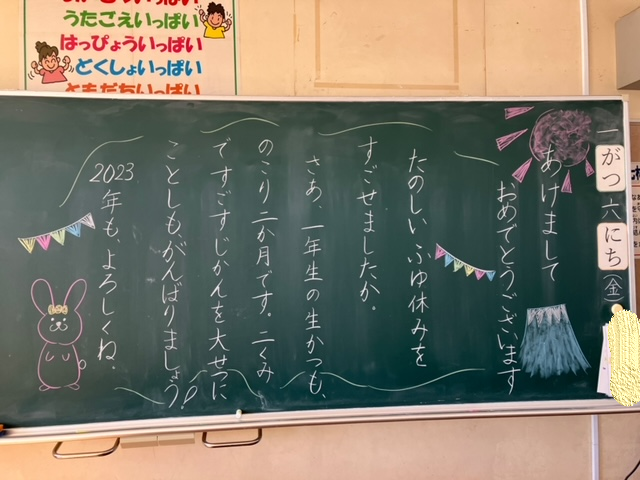 いっぱい
うたごえいっぱい
はっぴょういっぱい
どくしょいっぱい
ともだちいっぱい
一がつ六にち(金)
あけまして
おめでとうございます
たのしいふゆ休みを
すごせましたか。
さあ、一年生の生かつも、
のこり二か月です。二くみ
ですごすじかんを大せつに
ことしも、がんばりましょう!
2023年も、よろしくね。